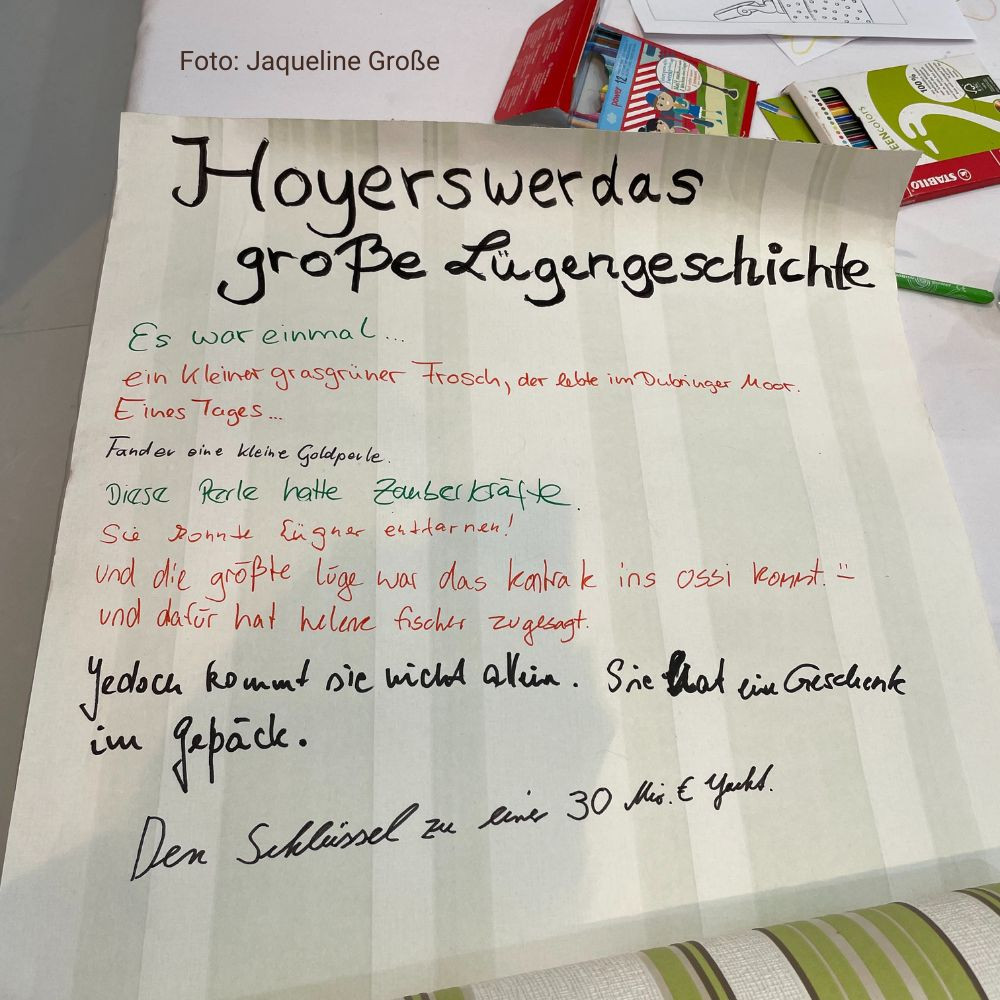 Foto: Jaqueline Große
100%
GREENcolors
STABILO
Hoyerswerdas
große Lügengeschichte
Es war einmal...
ein kleiner grasgrüner Frosch, der lebte im Dubringer Moor.
Eines Tages...
Fand er eine kleine Goldperle.
Diese Perle hatte Zauberkräfte.
Sie konnte Lügner enttarnen!
und die größte lüge war das kontrak ins ossi kommt. =
und dafür hat helene fischer zugesagt.
Jedoch kommt sie nicht allein. Sie hat ein Geschenk
im Gepäck.
Den Schlüssel zu einer 30 Mio. € Yacht.